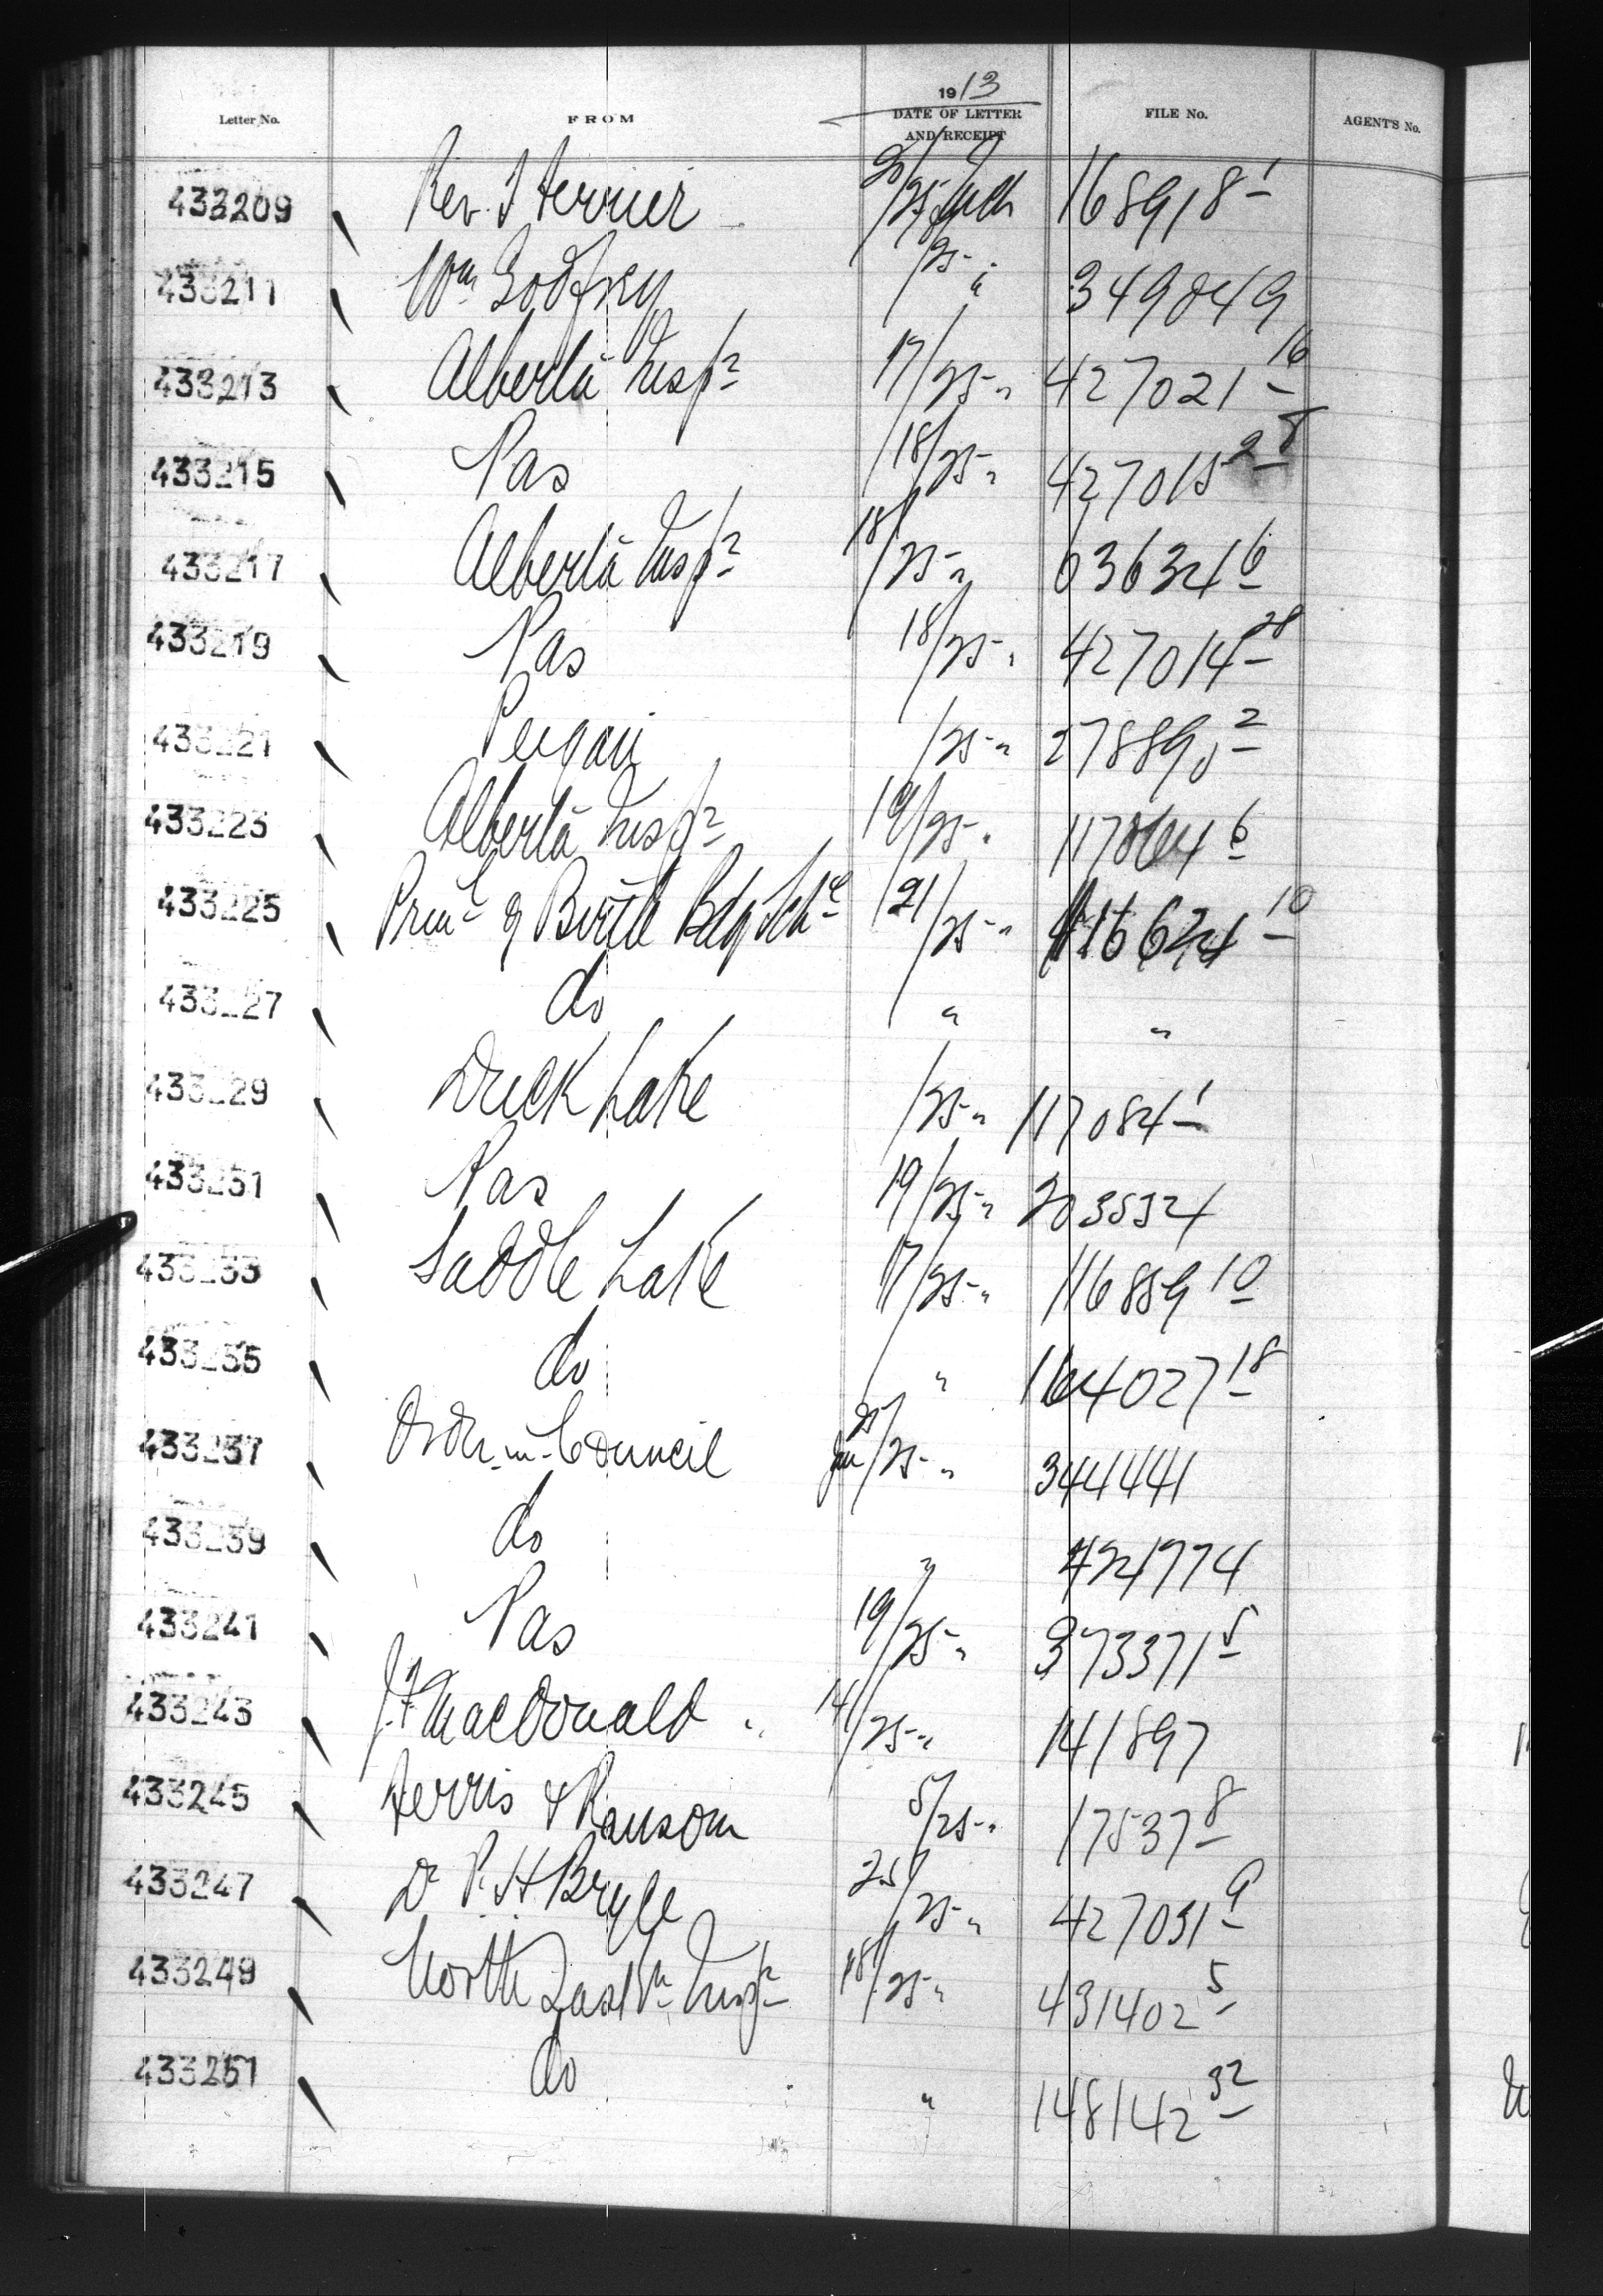 1913
Letter No. FROM DATE OF LETTER AND RECEIPT FILE No. AGENT'S No.
433209 Rev. 168918 1
433211 Wm Godfrey /25 " 349049
433213 Alberta Insp r 17/25 " 427021 16
433215 Pas 18/25 " 427015 28
433217 Alberta Insp r 18/25 " 63632 6
433219 Pas 18/25 " 427014 28
433221 Peigan /25 " 2
433223 Alberta Insp r 19/25 " 6
433225 Prin l of Birtle Bdg Sch l 21/25 " 116624 10
433227 do " "
433229 Duck Lake /25 " 117084 1
433231 Pas 19/25 " 203532
433233 Saddle Lake 17/25 " 116859 10
433235 do " 164027 18
433237 Order-in-Council 25 Jan/25 " 344441
433239 do " 774
433241 Pas 19/25 " 373371 5
433243 J.F. MacDonald 14/25 " 141897
433245 Ferris & Ransom 5/25 " 17537 8
433247 Dr P. H. Bryce 25/25 " 427031 9
433249 North East rn Insp r 18/25 " 431402 5
433251 do " 148142 32